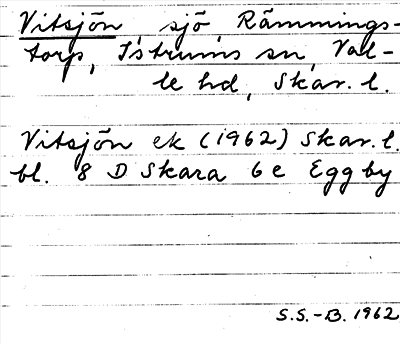 Vitsjön, sjö, Rämmings-
torp, Istrums sn, Val-
le hd, Skar. l.
Vitsjön ek (1962) Skar. l.
bl. 8 D Skara 6 e Eggby
S.S.-B. 1962